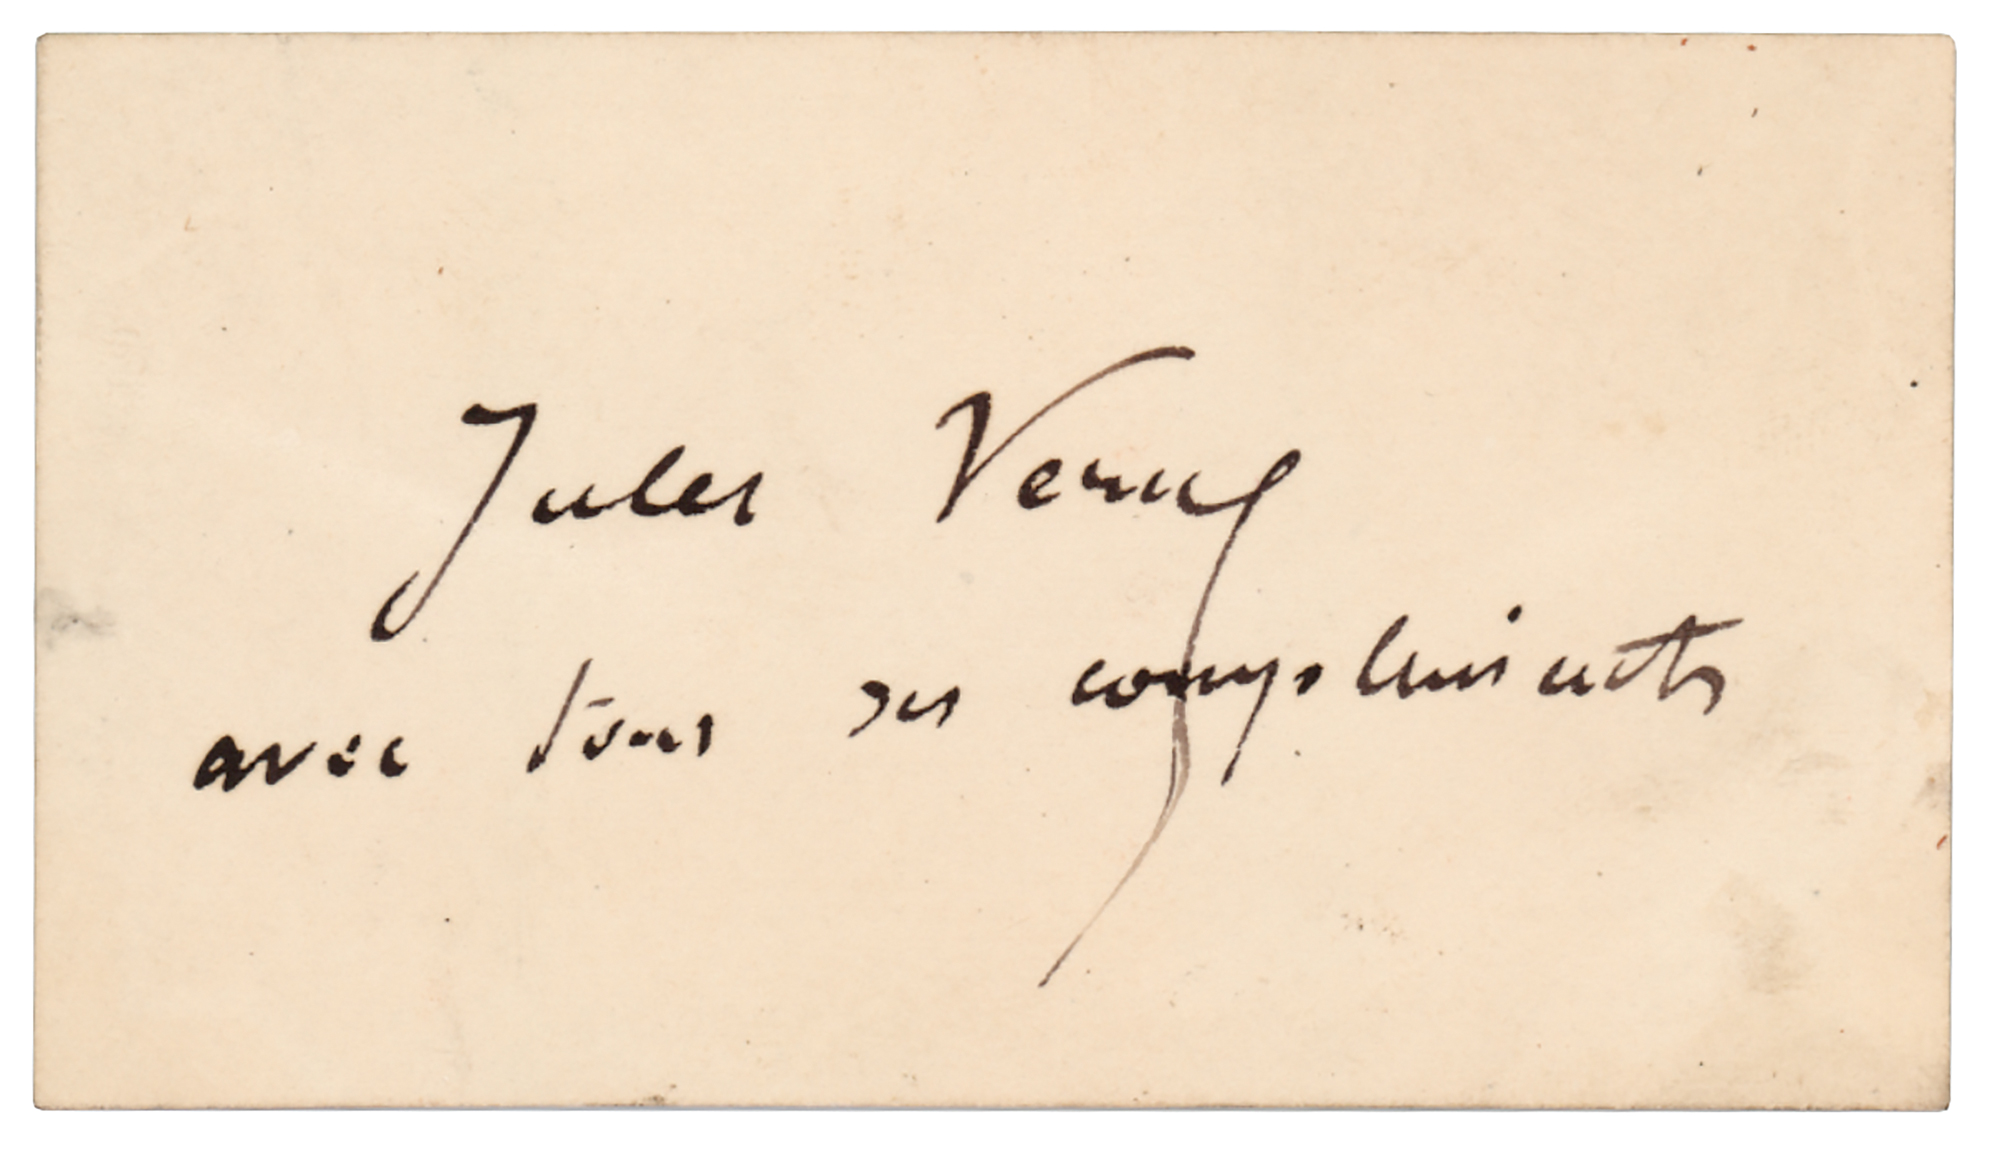 Jules Verne
avec tous ses compliments